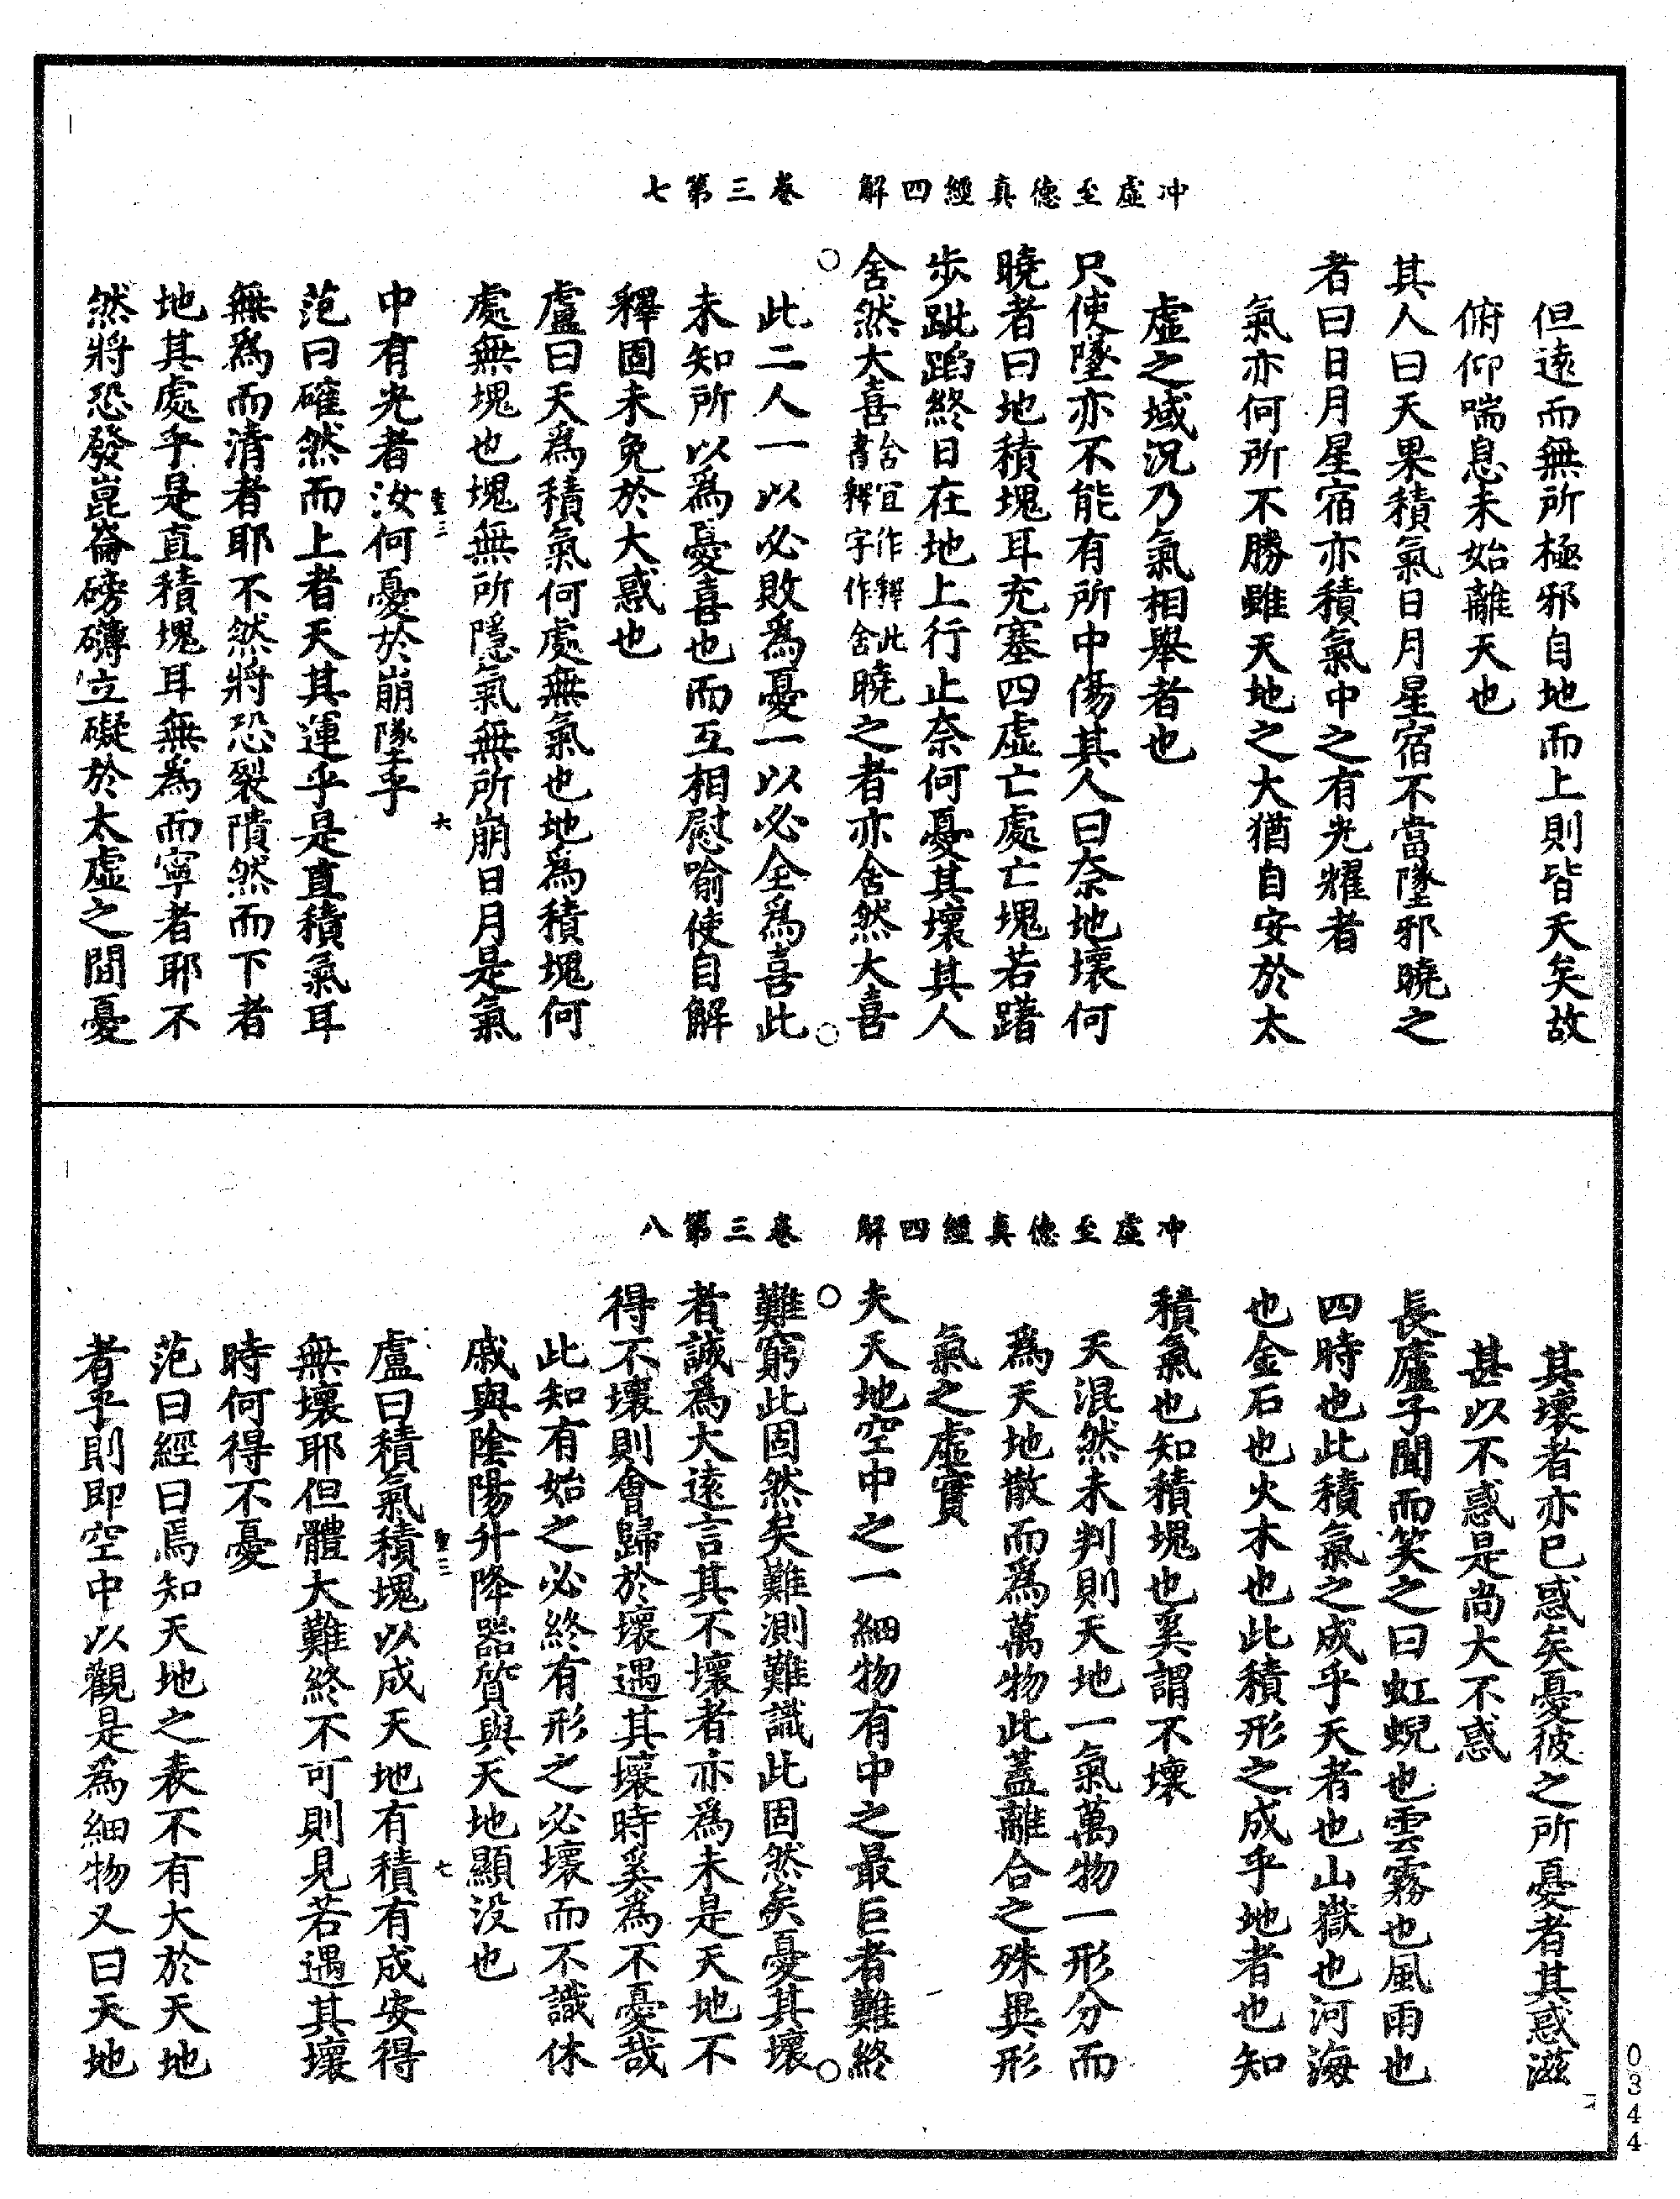 冲虛至德真經四解　卷三第七
但遠而無所極邪自地而上則皆天矣故
俯仰喘息未始離天也
其人曰天果積氣日月星宿不當墜邪曉之
者曰日月星宿亦積氣中之有光耀者
氣亦何所不勝雖天地之大猶自安於太
虛之域況乃氣相舉者也
只使墜亦不能有所中傷其人曰奈地壞何
曉者曰地積塊耳充塞四虛亡處亡塊若躇
步跐蹈終日在地上行止奈何憂其壞其人
舍然大喜舍宜作釋此書釋字作舍曉之者亦舍然大喜
此二人一以必敗為憂一以必全為喜此
未知所以為憂喜也而互相慰喻使自解
釋固未免於大惑也
盧曰天為積氣何處無氣也地為積塊何
處無塊也塊無所隱氣無所崩日月是氣
聖三　六
中有光者汝何憂於崩墜乎
范曰確然而上者天其運乎是直積氣耳
無為而清者耶不然將恐裂隤然而下者
地其處乎是直積塊耳無為而寧者耶不
然將恐發崑崙磅礴立礙於太虛之間憂
冲虛至德真經四解　卷三第八
其壞者亦已惑矣憂彼之所憂者其惑滋
甚以不惑是尚大不惑
長廬子聞而笑之曰虹蜺也雲霧也風雨也
四時也此積氣之成乎天者也山嶽也河海
也金石也火木也此積形之成乎地者也知
積氣也知積塊也奚謂不壞
天混然未判則天地一氣萬物一形分而
為天地散而為萬物此蓋離合之殊異形
氣之虛實
夫天地空中之一細物有中之最巨者難終
難窮此固然矣難測難識此固然矣憂其壞
者誠為大遠言其不壞者亦為未是天地不
得不壞則會歸於壞遇其壞時奚為不憂哉
此知有始之必終有形之必壞而不識休
戚與陰陽升降器質與天地顯没也
聖三　七
盧曰積氣積塊以成天地有積有成安得
無壞耶但體大難終不可則見若遇其壞
時何得不憂
范曰經曰焉知天地之表不有大於天地
者乎則即空中以觀是為細物又曰天地
0344